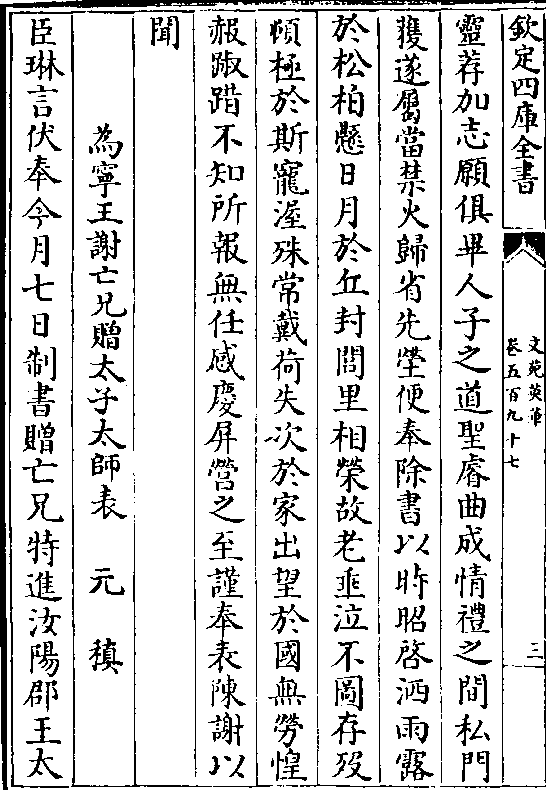 欽定四庫全書
文苑英華
卷五百九十七
三
靈荐加志願俱畢人子之道聖睿曲成情禮之間私門
獲遂屬當禁火歸省先塋便奉除書以時昭啓洒雨露
於松柏懸日月於丘封閭里相榮故老垂泣不圖存殁
頓極於斯寵渥殊常戴荷失次於家出望於國無勞惶
赧踧踖不知所報無任感慶屏營之至謹奉表陳謝以
聞
為寧王謝亡兄贈太子太師表 元稹
臣琳言伏奉今月七日制書贈亡兄特進汝陽郡王太